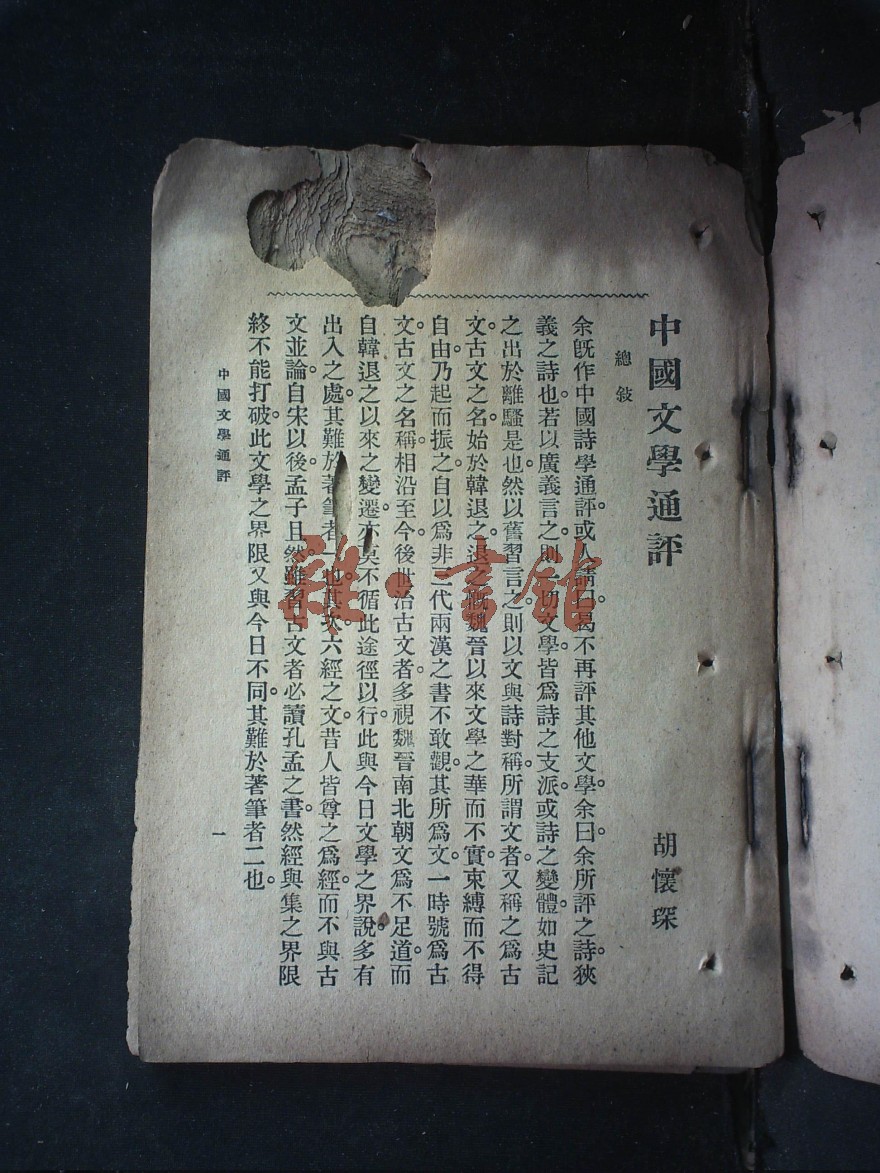 中國文學通評
胡懷琛
總敍
余旣作中國詩學通評。或人請曰。曷不再評其他文學。余曰。余所評之詩。狹
義之詩也。若以廣義言之。則一切文學。皆爲詩之支派。或詩之變體。如史記
之出於離騷是也。然以舊習言之。則以文與詩對稱。所謂文者。又稱之爲古
文。古文之名。始於韓退之。退之槪魏晉以來文學之華而不實。束縛而不得
自由。乃起而振之。自以爲非三代兩漢之書不敢觀。其所爲文。一時號爲古
文。古文之名稱。相沿至今。後世治古文者。多視魏晉南北朝文爲不足道。而
自韓退之以來之變遷。亦莫不循此途徑以行。此與今日文學之界說。多有
出入之處。其難於著筆者一也。其次六經之文。昔人皆尊之爲經。而不與古
文並論。自宋以後。孟子且然。雖習古文者必讀孔孟之書。然經與集之界限
終不能打破。此文學之界限。又與今日不同。其難於著筆者二也。
中國文學通評
一
雜·書館